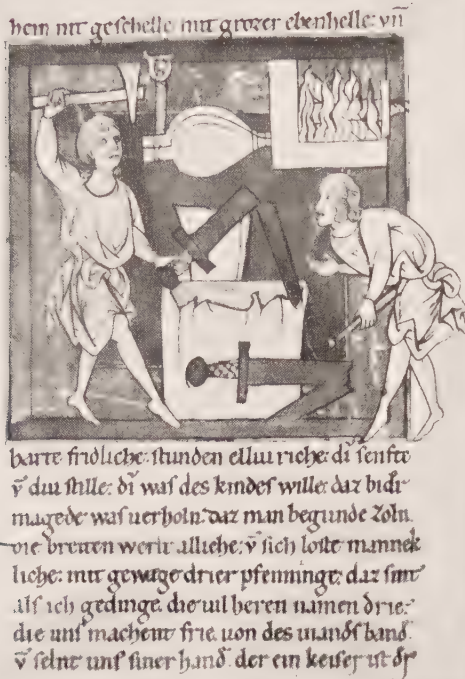 hein mit geschelle mit grozer ebenhelle: vn̄
barte fridliche: stunden elliu riche: di senfte
v̄ diu stille: di was des kindes wille: daz bi dir
magede was uerholn: daz man begunde zoln
die breiten werlt alliche: v̄ sich loste mannek
liche: mit gewæge drier pfenninge: daz sint
als ich gedinge. die uil heren namen drie:
die uns machent frie. uon des uiands band.
v̄ selnt uns siner hand. der ein keiser ist